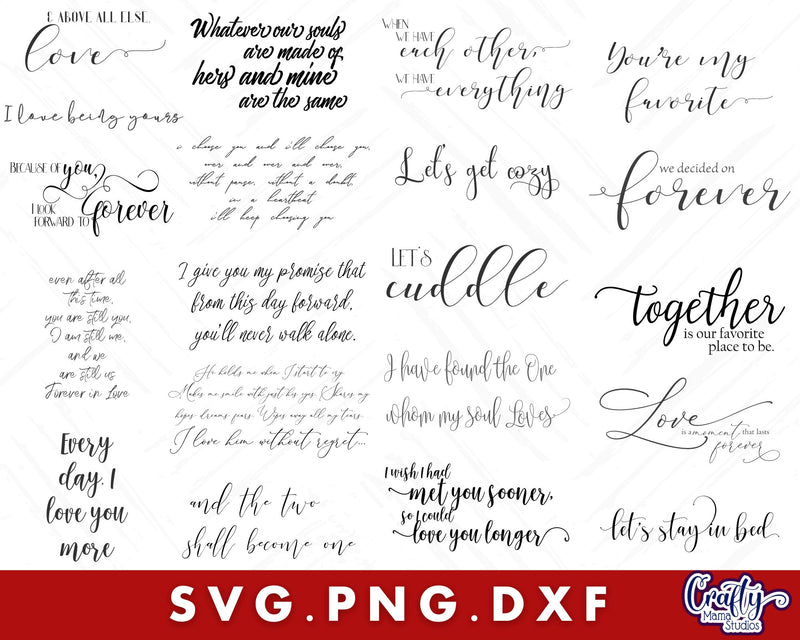 & ABOVE ALL ELSE,
love
I love being yours
BECAUSE OF you,
I LOOK
FORWARD TO forever
even after all
this time,
you are still you,
I am still me,
and we
are still us
Forever in Love
Every
day, I
love you
more
Whatever our souls
are made of
hers and mine
are the same
i choose you and i'll choose you,
over and over and over,
without pause, without a doubt,
in a heartbeat
i'll keep choosing you
I give you my promise that
from this day forward,
you'll never walk alone.
He holds me when I start to cry
Makes me smile with just his eyes, Shares my
hopes dreams, fears. Wipes away all my tears.
I love him without regret...
and the two
shall become one
WHEN
WE HAVE
each other,
WE HAVE
everything
Let's get cozy
LET'S
cuddle
I have found the One
whom my soul Loves
I wish I had
met you sooner,
so I could
love you longer
You're my
favorite
we decided on
forever
together
is our favorite
place to be.
Love
is a moment that lasts
forever
let's stay in bed
SVG.PNG.DXF
Crafty
Mama
Studios